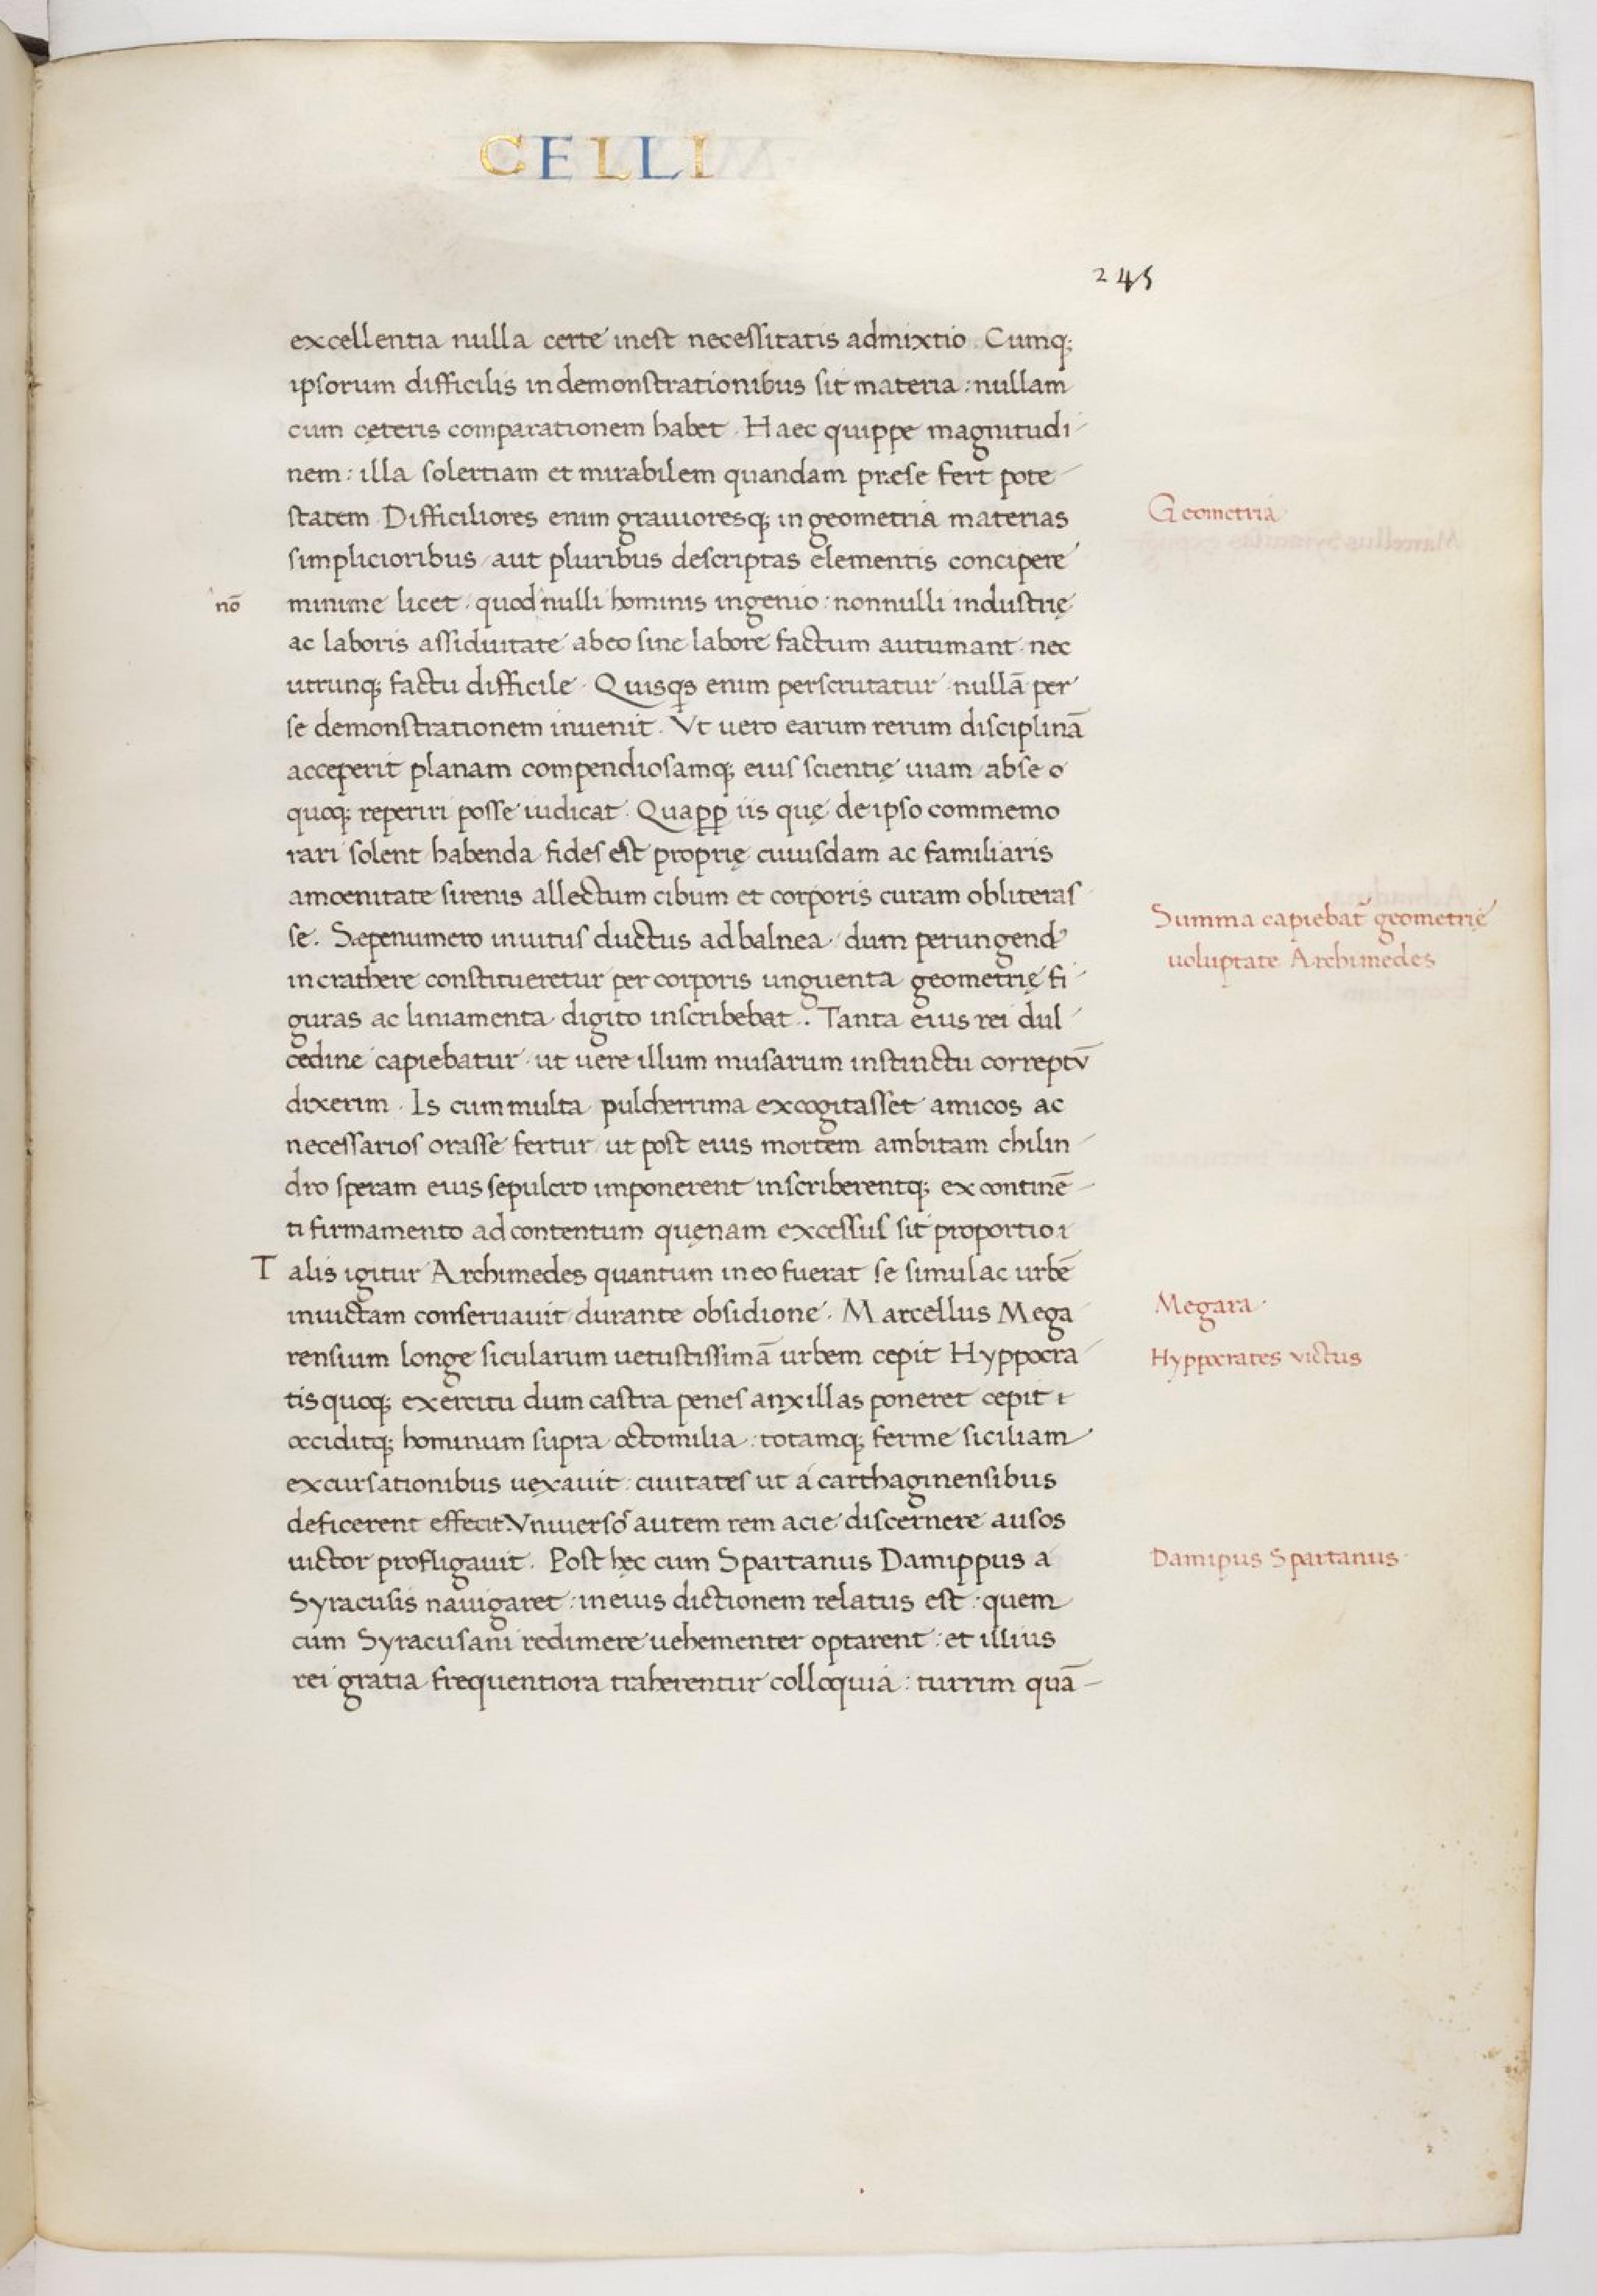 CELLI
245
excellentia nulla certe inest necessitatis admixtio. Cumq;
ipsorum difficilis in demonstrationibus sit materia: nullam
cum cęteris comparationem habet. Haec quippe magnitudi-
nem: illa solertiam et mirabilem quandam præse fert pote-
statem. Difficiliores enim grauioresq; in geometria materias
Geometria
simplicioribus / aut pluribus descriptas elementis concipere
nō
minime licet. quod nulli hominis ingenio: nonnulli industrię
ac laboris assiduitate ab eo sine labore factum autumant. nec
utrunq; factu difficile. Quisqs enim perscrutatur nullā per
se demonstrationem inuenit. Vt uero earum rerum disciplinā
acceperit planam compendiosamq; eius scientię uiam abse o
quoq; reperiri posse iudicat. Quapp iis quę de ipso commemo
rari solent habenda fides est proprię cuiusdam ac familiaris
amoenitate sirenis allectum cibum et corporis curam obliteras
se. Sæpenumero inuitus ductus ad balnea / dum perungend'
Summa capiebat geometrię
uoluptate Archimedes
in crathere constitueretur per corporis unguenta geometrię fi-
guras ac liniamenta digito inscribebat. Tanta eius rei dul-
cedine capiebatur. ut uere illum musarum instinctu correptū
dixerim. Is cum multa pulcherrima excogitasset amicos ac
necessarios orasse fertur / ut post eius mortem ambitam chilin-
dro speram eius sepulcro imponerent inscriberentq; ex continē-
ti firmamento ad contentum quęnam excessus sit proportio:
Talis igitur Archimedes quantum in eo fuerat se simulac urbē
inuictam conseruauit durante obsidione. Marcellus Mega
Megara.
rensium longe sicularum uetustissimā urbem cepit Hyppocra-
Hyppocrates victus
tis quoq; exercitu dum castra penes anxillas poneret cepit &
occiditq; hominum supra octomilia: totamq; ferme siciliam
excursationibus uexauit. ciuitates ut a carthaginensibus
deficerent effecit. Vniuerso autem rem acie discernere ausos
uictor profligauit. Post hęc cum Spartanus Damippus a
Damipus Spartanus.
Syracusis nauigaret: in eius dictionem relatus est: quem
cum Syracusani redimere uehementer optarent: et illius
rei gratia frequentiora traherentur colloquia: turrim quā-